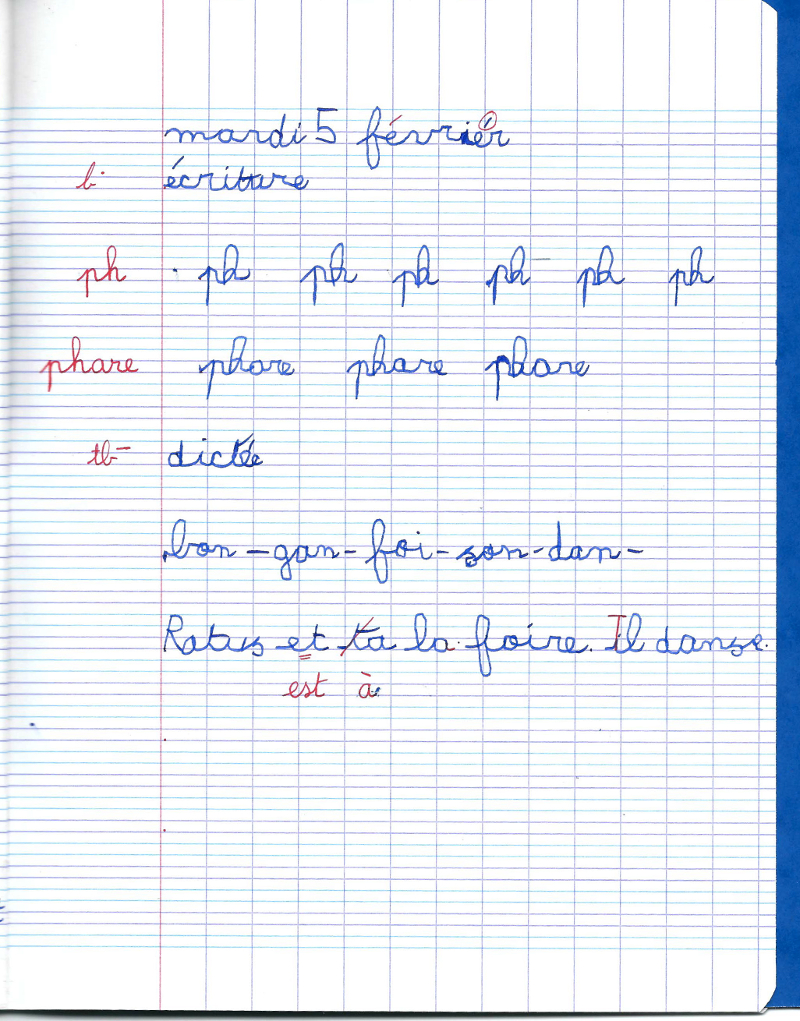 mardi 5 février
b. écriture
ph ph ph ph ph ph ph
phare phare phare phare
tb- dictée
bon - gan - foi - son - dan -
Ratus et ta la foire. Il danse.
est à